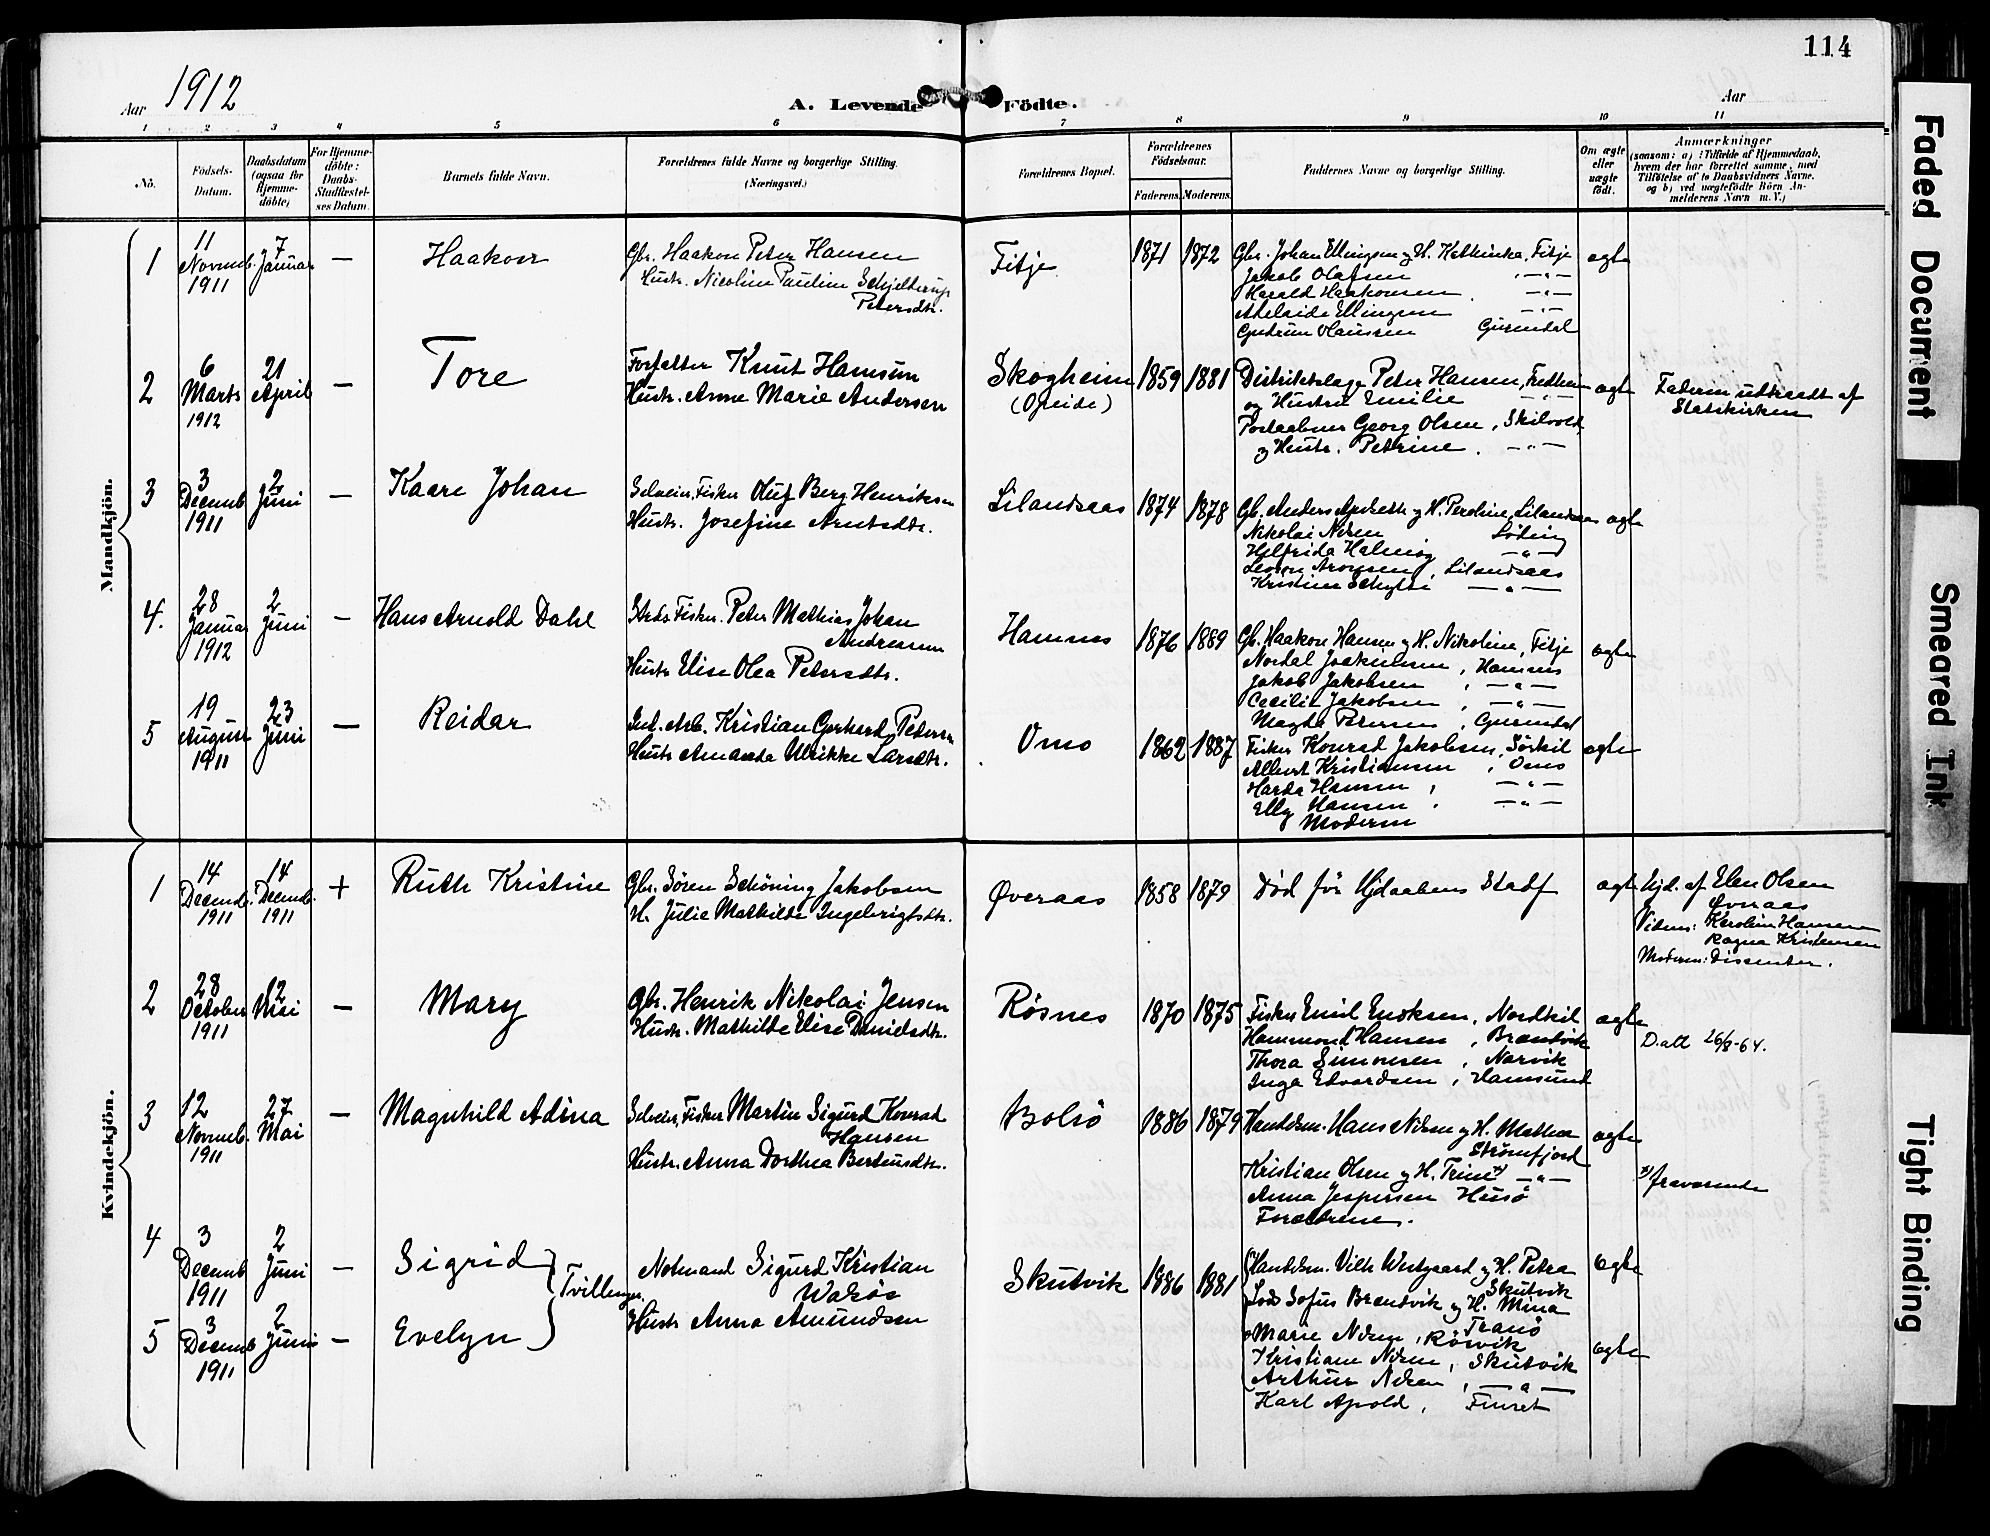 114
Aar 1912
A. Levende Födte.
Aar
1 2 3 4 5 6 7 8 9 10 11
No.
Födsels-Datum.
Daabsdatum (ogsaa for Hjemme-döbte)
For Hjemme-döbte: Daabs-Stadfæstel-ses Datum.
Barnets fulde Navn.
Forældrenes fulde Navne og borgerlige Stilling. (Næringsvei.)
Forældrenes Bopæl.
Forældrenes Födselsaar.
Faderens. Moderens.
Faddernes Navne og borgerlige Stilling.
Om ægte eller uægte födt.
Anmærkninger
(saasom: a) i Tilfælde af Hjemmedaab,
hvem der har forrettet samme, med
Tilföielse af to Daabsvidners Navne,
og b) ved uægtefödte Börn An-
melderens Navn m. V.)
Mandkjön.
1
11 Novemb. 1911
7 Januar
—
Haakon
Gbr. Haakon Peter Hansen
Hustr. Nicoline Pauline Schjelderup
Petersdtr.
Fitje
1871 1872
Gbr. Johan Ellingsen og H. Kathinka, Fitje
Jakob Olafsen —"—
Harald Haakonsen. —"—
Adelaide Ellingsen —"—
Gudrun Olaussen
ægte
2
6 Marts 1912
21 April
—
Tore
Forfatter Knut Hamsun
Hustr. Anne Marie Andersen
Skogheim
(Opeide)
1859 1881
Distriktslæge Peter Hansen,
og Hustru Emilie —"—
Postaabner Georg Olsen, Skilvold,
og Hustr. Petrine. —"—
ægte
Faderen udtraadt af
Statskirken
3
3 Decemb. 1911
2 Juni
—
Kaare Johan
Selveier, Fisker Oluf Berg Henriksen
Hustr. Josefine Arntsdtr.
Lilandsaas
1874 1878
Gb. Anders og H. Perdine, Lilandsaas
Nikolai Nilsen
—"—
Aronsen, Lilandsaas
Kristine —"—
ægte
4.
28 Januar 1912
2 Juni
—
Hans Arnold Dahl
Fisker. Peter Mathias Johan
Andreasen
Hustr Elise Olea Petersdtr.
Hamnes
1876 1889
Gb. Haakon Hansen og H. Nikoline, Fitje
Nordal Joakimsen, Hamnes
Jakob Jakobsen, —"—
Cecilie Jakobsen, —"—
Magda Petersen,
ægte
5
19 August 1911
23 Juni
—
Reidar
Kristian Gerhard Pedersen
Hustr Amanda Ulrikke Larsdtr.
Omo
1862 1887
Fisker Konrad Jakobsen, Sörkil
Albert Kristiansen, Omo
Harda Hansen, —"—
Elly Hansen. —"—
Moderen
ægte
Kvindekjön.
1
14 Decemb. 1911
14 Decemb. 1911
+
Ruth Kristine
Gbr. Søren Schöning Jakobsen
H. Julie Mathilde Ingebrigtsdtr.
Øveraas
1858 1879
Død för Hjdaabens Stadf
ægte
Hjd. af Elen Olsen
Øveraas
Vidner: Karoline Hansen
Ragna Kristensen
Moderen: Dissenter.
2
28 October 1911
12 Mai
—
Mary
Gbr. Henrik Nikolai Jensen
Hustr. Mathilde Elise Danielsdtr.
Røsnes
1870 1875
Fisker Emil Eriksen, Nordkil
Hammond Hansen, Brandvik
Thora Simonsen, Narvik
Inga Edvardsen, Hamsund
ægte
D. att 26/8-64.
3
12 Novemb. 1911
27 Mai
—
Magnhild Adina
Selveier, Fisker Martin Sigurd Konrad
Hansen
Hustr. Anna Dorthea Berteusdtr.
Bolsö
1886 1879
Handelsm. Hans Nilsen og H. Mathea
Strømfjord
Kristian Olsen og H. Trine x) —"—
Anna Jespersen Husö
Forældrene.
ægte
x) fraværende
4
3 Decemb 1911
2 Juni
—
Sigrid
Tvillinger.
Notmand Sigurd Kristian
Walsöe
Hustr Anna Amundsen
Skutvik
1886 1881
Handelsm. Vilh Westgaard og H. Petra
Skutvik
Lods Sofus Brandvik og H. Mina
Tranö
Marie Nilsen, Rösvik
Kristiane Nilsen, Skutvik
Arthur Nilsen, —"—
Karl Apold, Finset
ægte
5
3 Decemb 1911
2 Juni
—
Evelyn
ægte
Faded Document
Smeared Ink
Tight Binding